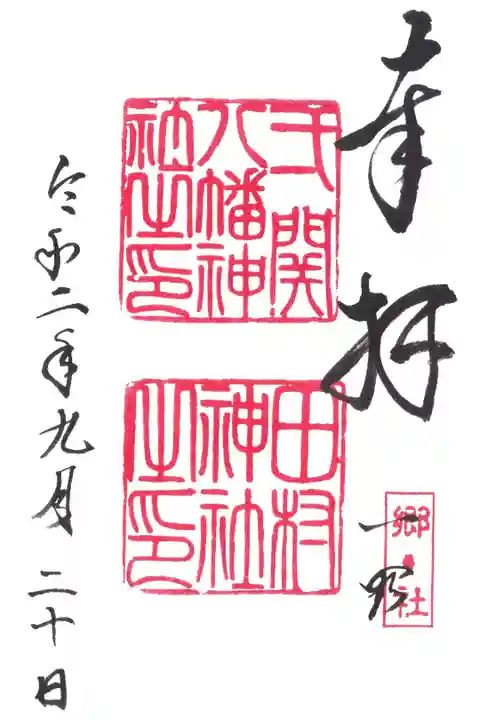 奉拝
郷社
八幡神
社之印
田村
神社
之印
令和二年九月二十日